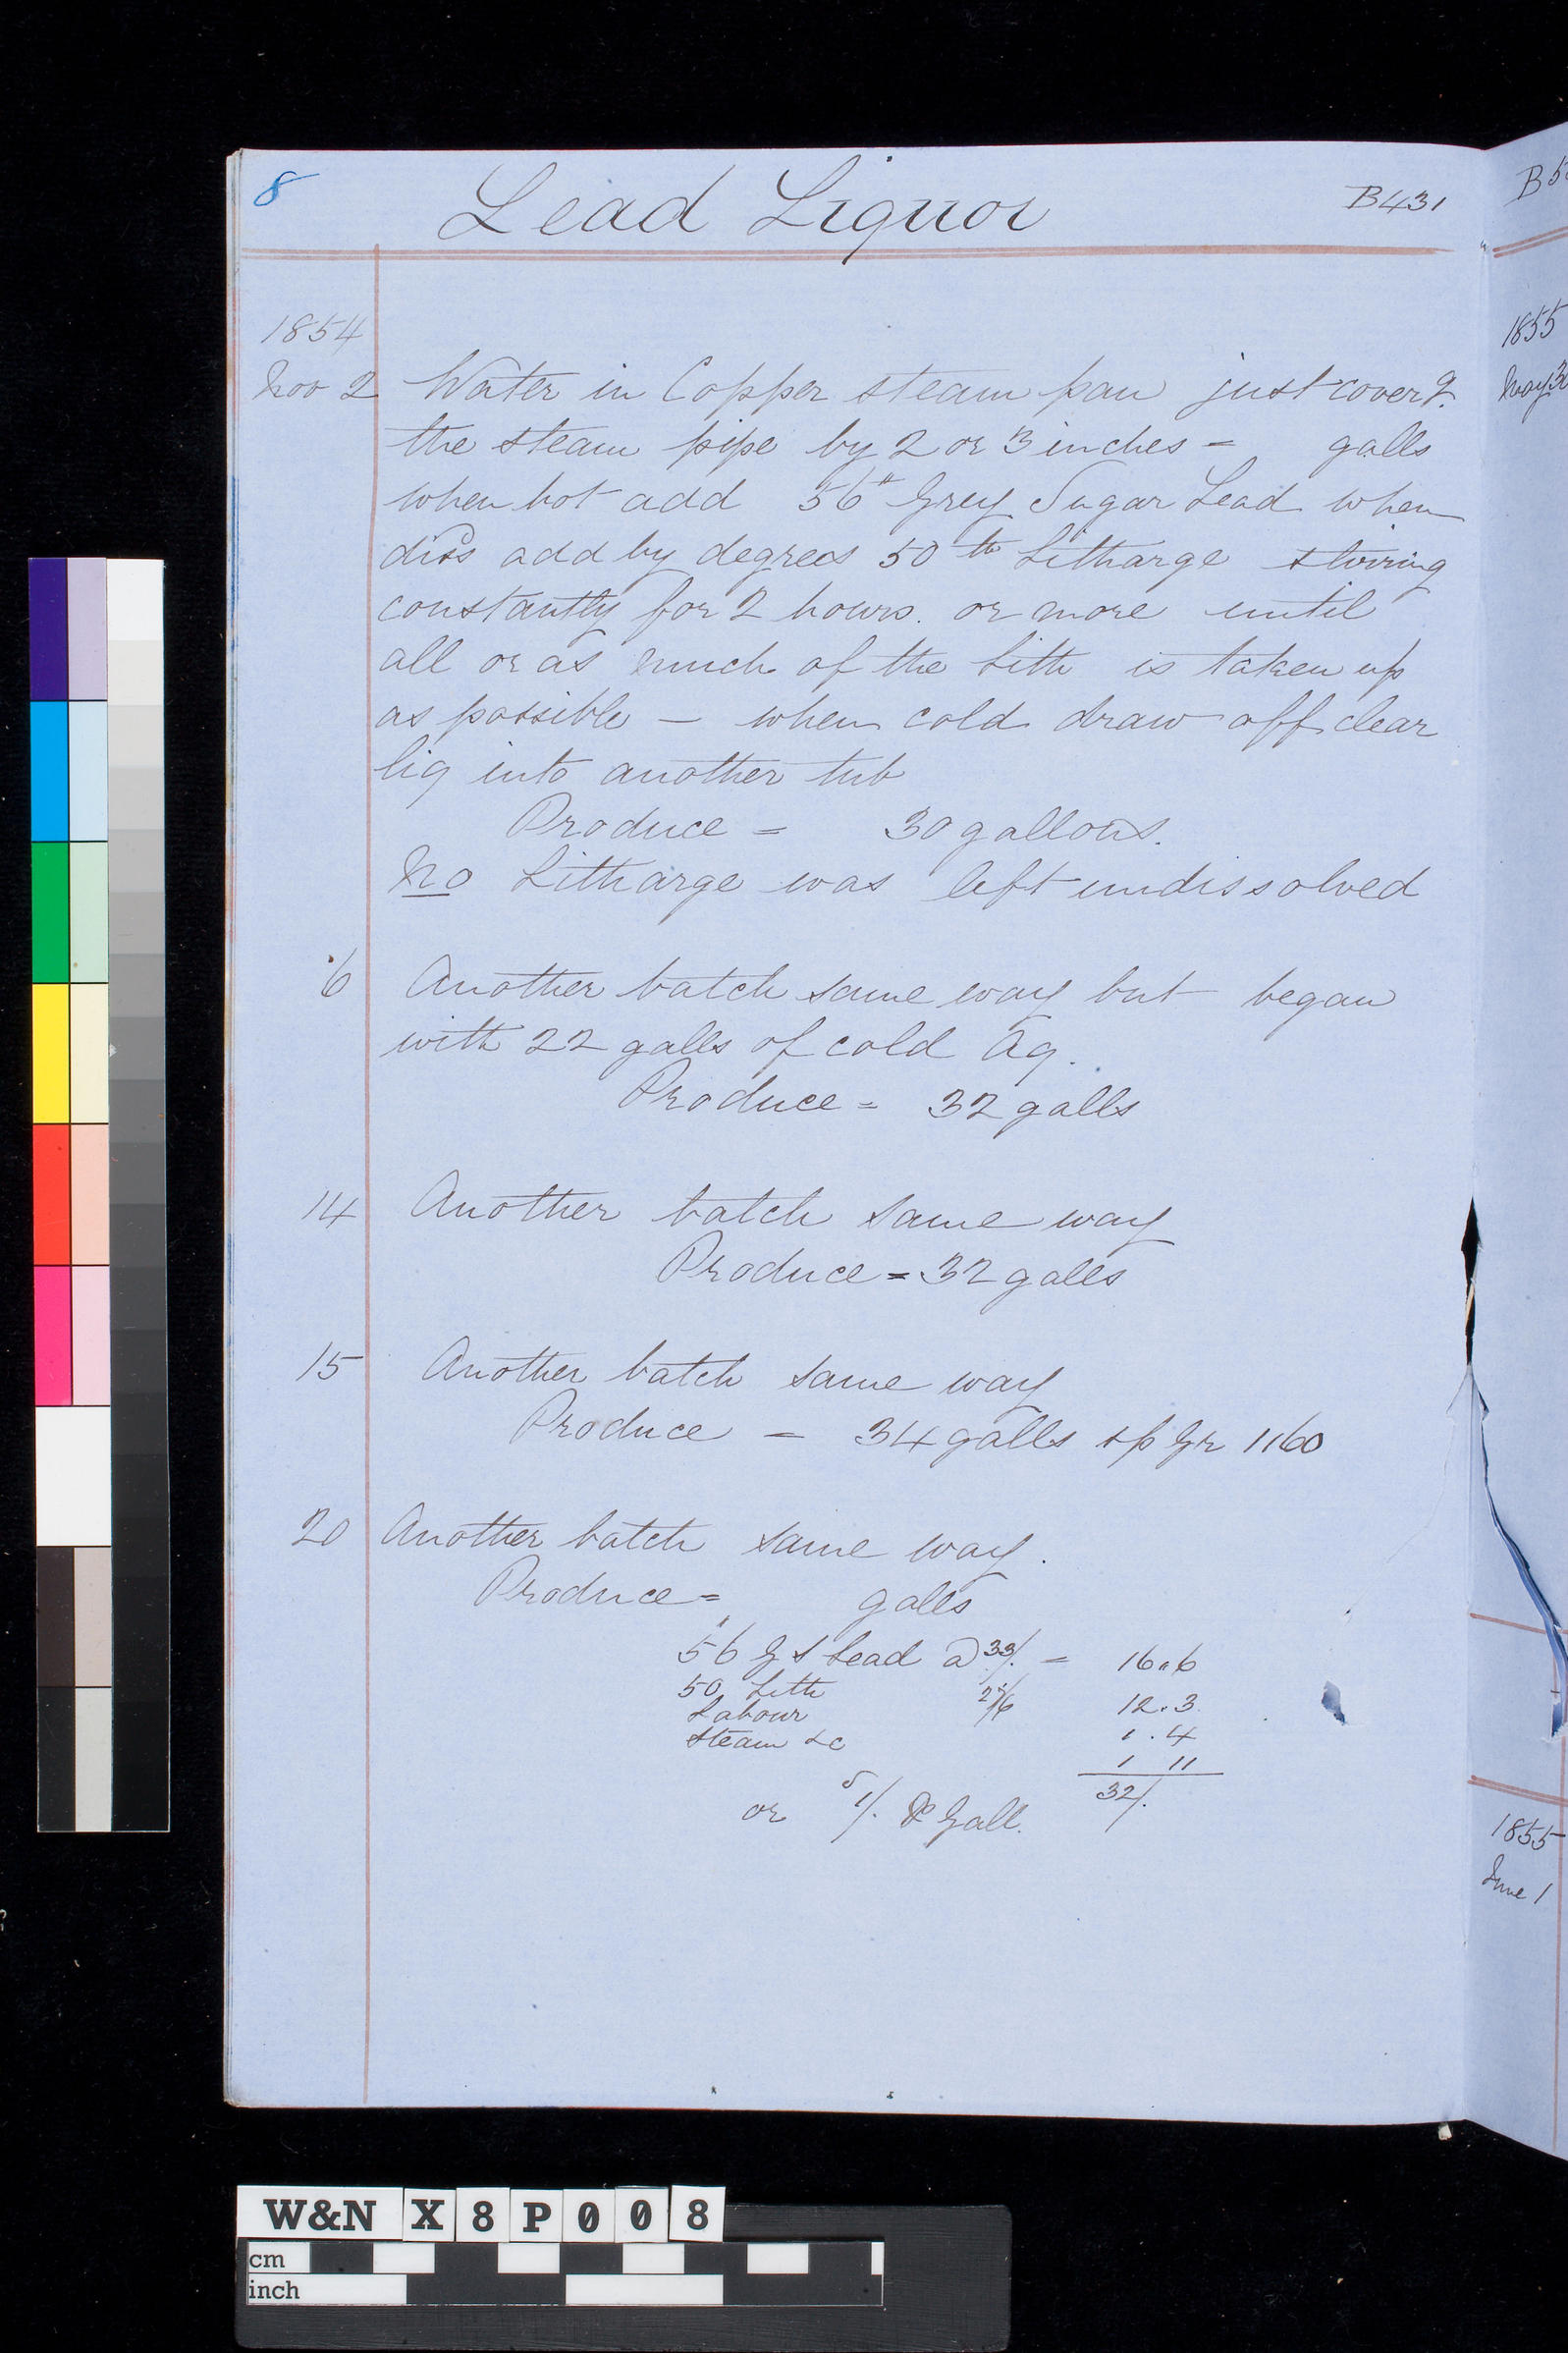 8
Lead Liquor
B431
1854
Nov 2 Water in Copper steam pan just coverg.
the steam pipe by 2 or 3 inches = galls
when hot add 56" Grey Sugar Lead when
diss add by degrees 50 lb Litharge stirring
constantly for 2 hours. or more until
all or as much of the Lith is taken up
as possible — when cold draw off clear
liq into another tub
Produce = 30 gallons.
No Litharge was left undissolved
6 Another batch same way but began
with 22 galls of cold Aq.
Produce = 32 galls
14 Another batch same way
Produce = 32 galls
15 Another batch same way
Produce = 34 galls sp Gr 1160
20 Another batch same way.
Produce = galls
56 G S Lead @ 33/. = 16"6
50 Lith 27/6 12.3
Labour 1.4
Steam &c 1 11
32/.
or 1/. ⅌ Gall.
B5
1855
May 3
1855
June 1
W&N X8P008
cm
inch